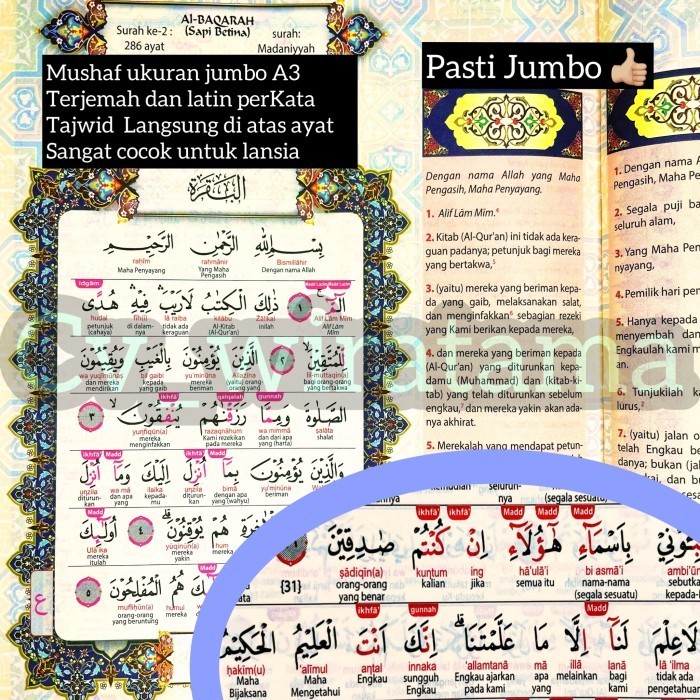 Surah ke-2 :
286 ayat
Al-BAQARAH
(Sapi Betina)
surah:
Madaniyyah
Mushaf ukuran jumbo A3
Terjemah dan latin perKata
Tajwid Langsung di atas ayat
Sangat cocok untuk lansia
Pasti Jumbo 👍🏼
البقرة
بِسْمِ اللهِ الرَّحْمٰنِ الرَّحِيْمِ
raḥīm raḥmānir Bismillāhir
Maha Penyayang Yang Maha Pengasih Dengan nama Allah
Idgām Madd Lāzim Madd Lāzim
الۤمّۤ ۝١ ذٰلِكَ الْكِتٰبُ لَارَيْبَ فِيْهِ هُدًى
hudal fīhi lā raiba kitābu Żālikal Alif Lām Mīm
petunjuk (cahaya) di dalam-nya tidak ada keraguan Kitab (Al-Qur'an) inilah Alif Lām Mīm
لِّلْمُتَّقِيْنَ ۝٢ الَّذِيْنَ يُؤْمِنُوْنَ بِالْغَيْبِ وَيُقِيْمُوْنَ
wa yuqīmūnaṣ bil gaibi yu'minūna Allażīna lil-muttaqīn(a)
dan mereka mendirikan kepada yang gaib beriman (yaitu) orang-orang yang bagi orang-orang yang bertakwa
ikhfā' qalqalah gunnah
الصَّلٰوةَ وَمِمَّا رَزَقْنٰهُمْ يُنْفِقُوْنَ ۝٣
yunfiqūn(a) razaqnāhum wa mimmā ṣalāta
mereka menginfakkan Kami rezekikan pada mereka dan dari apa yang (harta) shalat
ikhfā' Madd ikhfā' Madd
وَالَّذِيْنَ يُؤْمِنُوْنَ بِمَآ اُنْزِلَ اِلَيْكَ وَمَآ اُنْزِلَ
unzila wa mā ilaika unzila bimā yu'minūna
diturun-kan dan apa yang kepada-mu diturun-kan dengan apa yang (wahyu) beriman
Madd
هُمْ يُوْقِنُوْنَ ۝٤ اُولٰۤىِٕكَ
Ulā'ika yūqinūn(a) hum
mereka itulah yakin mereka
هُمُ الْمُفْلِحُوْنَ ۝٥
mufliḥūn(a) humul
orang-orang yang beruntung mereka
Dengan nama Allah yang Maha
Pengasih, Maha Penyayang.
1. Alif Lām Mīm.⁴
2. Kitab (Al-Qur'an) ini tidak ada kera-
guan padanya; petunjuk bagi mereka
yang bertakwa,⁵
3. (yaitu) mereka yang beriman kepa-
da yang gaib, melaksanakan salat,
dan menginfakkan⁶ sebagian rezeki
yang Kami berikan kepada mereka,
4. dan mereka yang beriman kepada
(Al-Qur'an) yang diturunkan kepa-
damu (Muhammad) dan (kitab-ki-
tab) yang telah diturunkan sebelum
engkau,⁷ dan mereka yakin akan ada-
nya akhirat.
5. Merekalah yang mendapat petun-
1. Dengan nama A
Pengasih, Maha Pe
2. Segala puji ba
seluruh alam,
3. Yang Maha Pen
nyayang,
4. Pemilik hari pen
5. Hanya kepada
menyembah dan
Engkaulah kami m
an.
6. Tunjukilah ka
lurus,²
7. (yaitu) jalan o
telah Engkau be
danya; bukan (jal
kemudian seluruh-nya (segala sesuatu)
ikhfā' ikhfā' Madd Madd Madd
بِاَسْمَآءِ هٰٓؤُلَآءِ اِنْ كُنْتُمْ صٰدِقِيْنَ
{31} ṣādiqīn(a) kuntum in hā'ulā'i bi asmā'i ambi'ūn
orang-orang yang benar kalian jika semua itu nama-nama (segala sesuatu) sebutka kepada-
ikhfā' gunnah Madd
لَاعِلْمَ لَنَآ اِلَّا مَا عَلَّمْتَنَا اِنَّكَ اَنْتَ الْعَلِيْمُ الْحَكِيْمُ
ḥakīm(u) 'alīmul antal innaka 'allamtanā mā illā lanā lā 'ilma
Maha Bijaksana Maha Mengetahui Engkau sungguh Engkau Engkau ajarkan pada kami apa yang melainkan bagi kami tidak ada pengetahuan